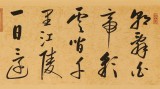 朝辭白
帝彩
雲間千
里江陵
一日還